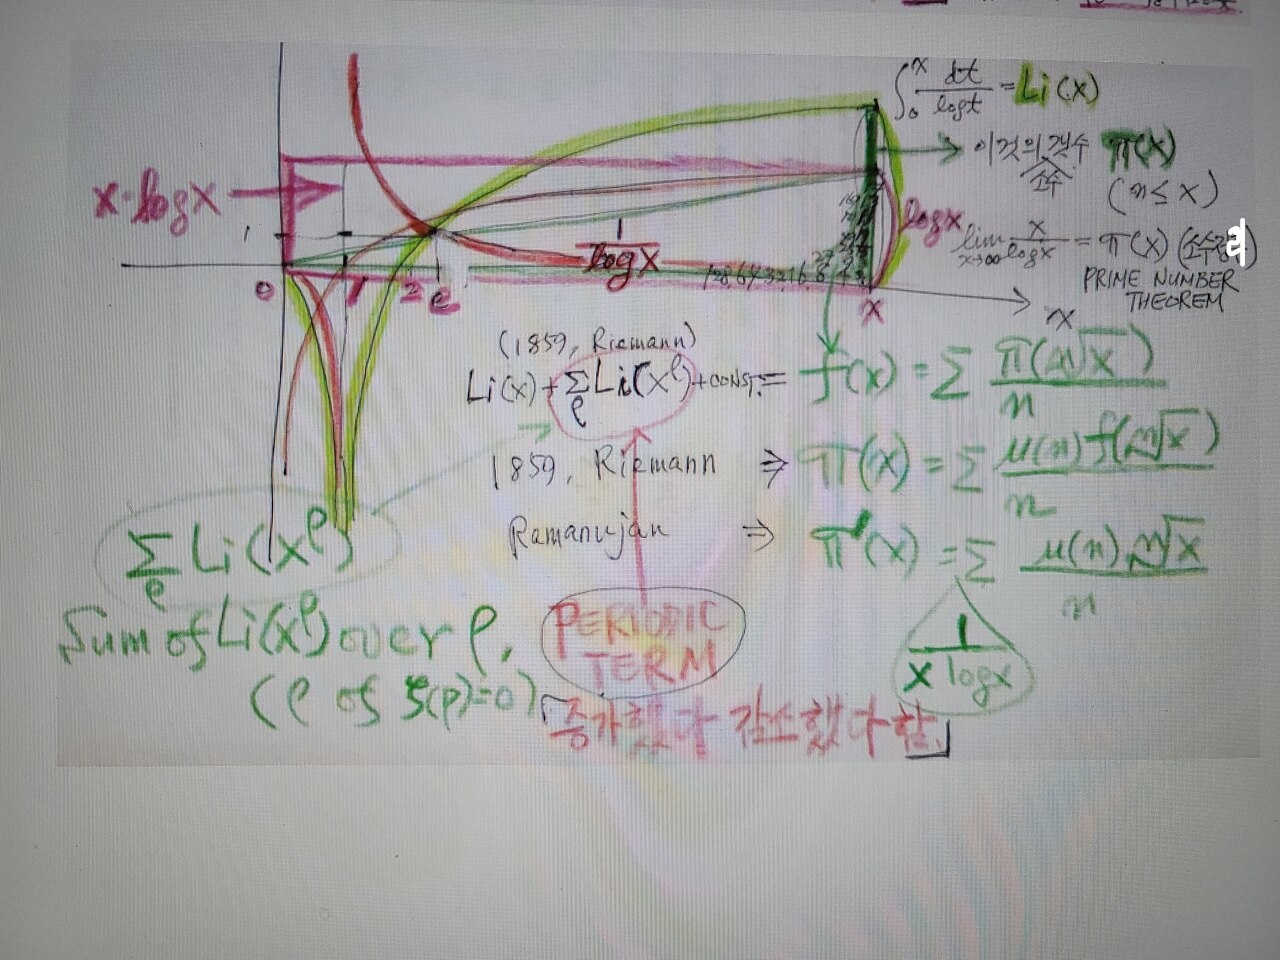 ∫₀ˣ dt/logt = Li(x)
이것의 개수 π(x)
소수
(n ≤ x)
x·logx
1
1/logX
logx
lim x→∞ x/logx = π(x) (소수정리)
PRIME NUMBER
THEOREM
128 64 32 16 8 4 2
0 1 2 e x x
(1859, Riemann)
Li(x) + Σρ Li(x^ρ) + const. = f(x) = Σ π(ⁿ√x)/n
1859, Riemann ⇒ π(x) = Σ μ(n) f(ⁿ√x)/n
Ramanujan ⇒ π'(x) = Σ μ(n) ⁿ√x/n
1/x logx
Σρ Li(x^ρ)
Sum of Li(x^ρ) over ρ.
(ρ of ζ(ρ)=0)
PERIODIC
TERM
「증가했다 감소했다 함.」